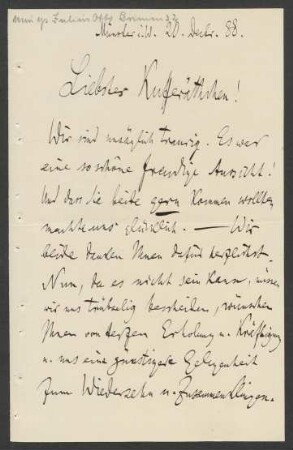 Münster i/W. 20. Dezbr. 88.
Liebster Kufferäthchen!
Wir sind unsäglich traurig. Es war
eine so schöne freudige Aussicht!
Und dass Sie beide gern kommen wollten
machte uns glücklich. — Wir
beide danken Ihnen dafür herzlichst.
Nun, da es nicht sein kann, müssen
wir uns trübselig bescheiden, wünschen
Ihnen von Herzen Erholung u. Kräftigung
u. uns eine günstigere Gelegenheit
zum Wiedersehn u. Zusammenklingen.